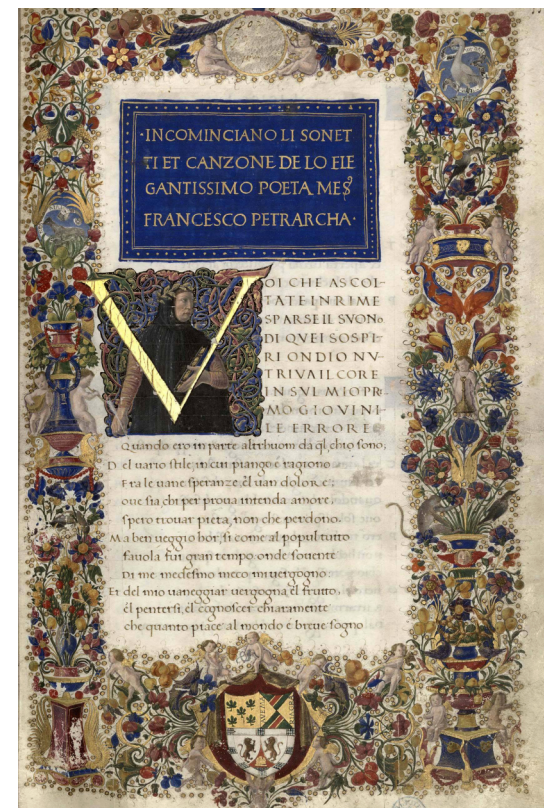 ·INCOMINCIANO LI SONET
TI ET CANZONE DE LO ELE
GANTISSIMO POETA MES
FRANCESCO PETRARCHA·
VOI CHE ASCOL
TATE IN RIME
SPARSE IL SVONO
DI QVEI SOSPI
RI ONDIO NV
TRIVA IL CORE
IN SVL MIO PR
MO GIOVINI
LE ERRORE
Quando ero in parte altrhuom da ql chio sono,
Del uario stile, in cui piango e ragiono
Fra le uane speranze, el uan dolore;
oue sia chi per proua intenda amore,
spero trouar pieta, non che perdono.
Ma ben ueggio hor, si come al popul tutto
fauola fui gran tempo, onde souente
Di me medesmo meco mi uergogno
Et del mio uaneggiar uergogna el frutto,
el pentersi, el cognoscer chiaramente
che quanto piace al mondo e breue sogno